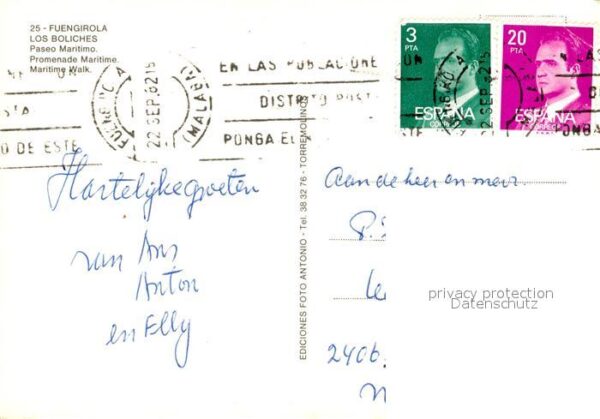 25 - FUENGIROLA
LOS BOLICHES
Paseo Marítimo.
Promenade Maritime.
Maritime Walk.
22 SEP. 82
(MALAGA)
EN LAS POBLACIONE
PONGA EL
O DE ESTE
3
PTA
ESPAÑA
20
PTAS
ESPAÑA
22 SEP. 82
PONGA
Hartelijke groeten
van Ans
Anton
en Elly
EDICIONES FOTO ANTONIO - Tel. 38 32 76 - TORREMOLINOS
Aan de heer en mevr.
P.
2406
privacy protection
Datenschutz